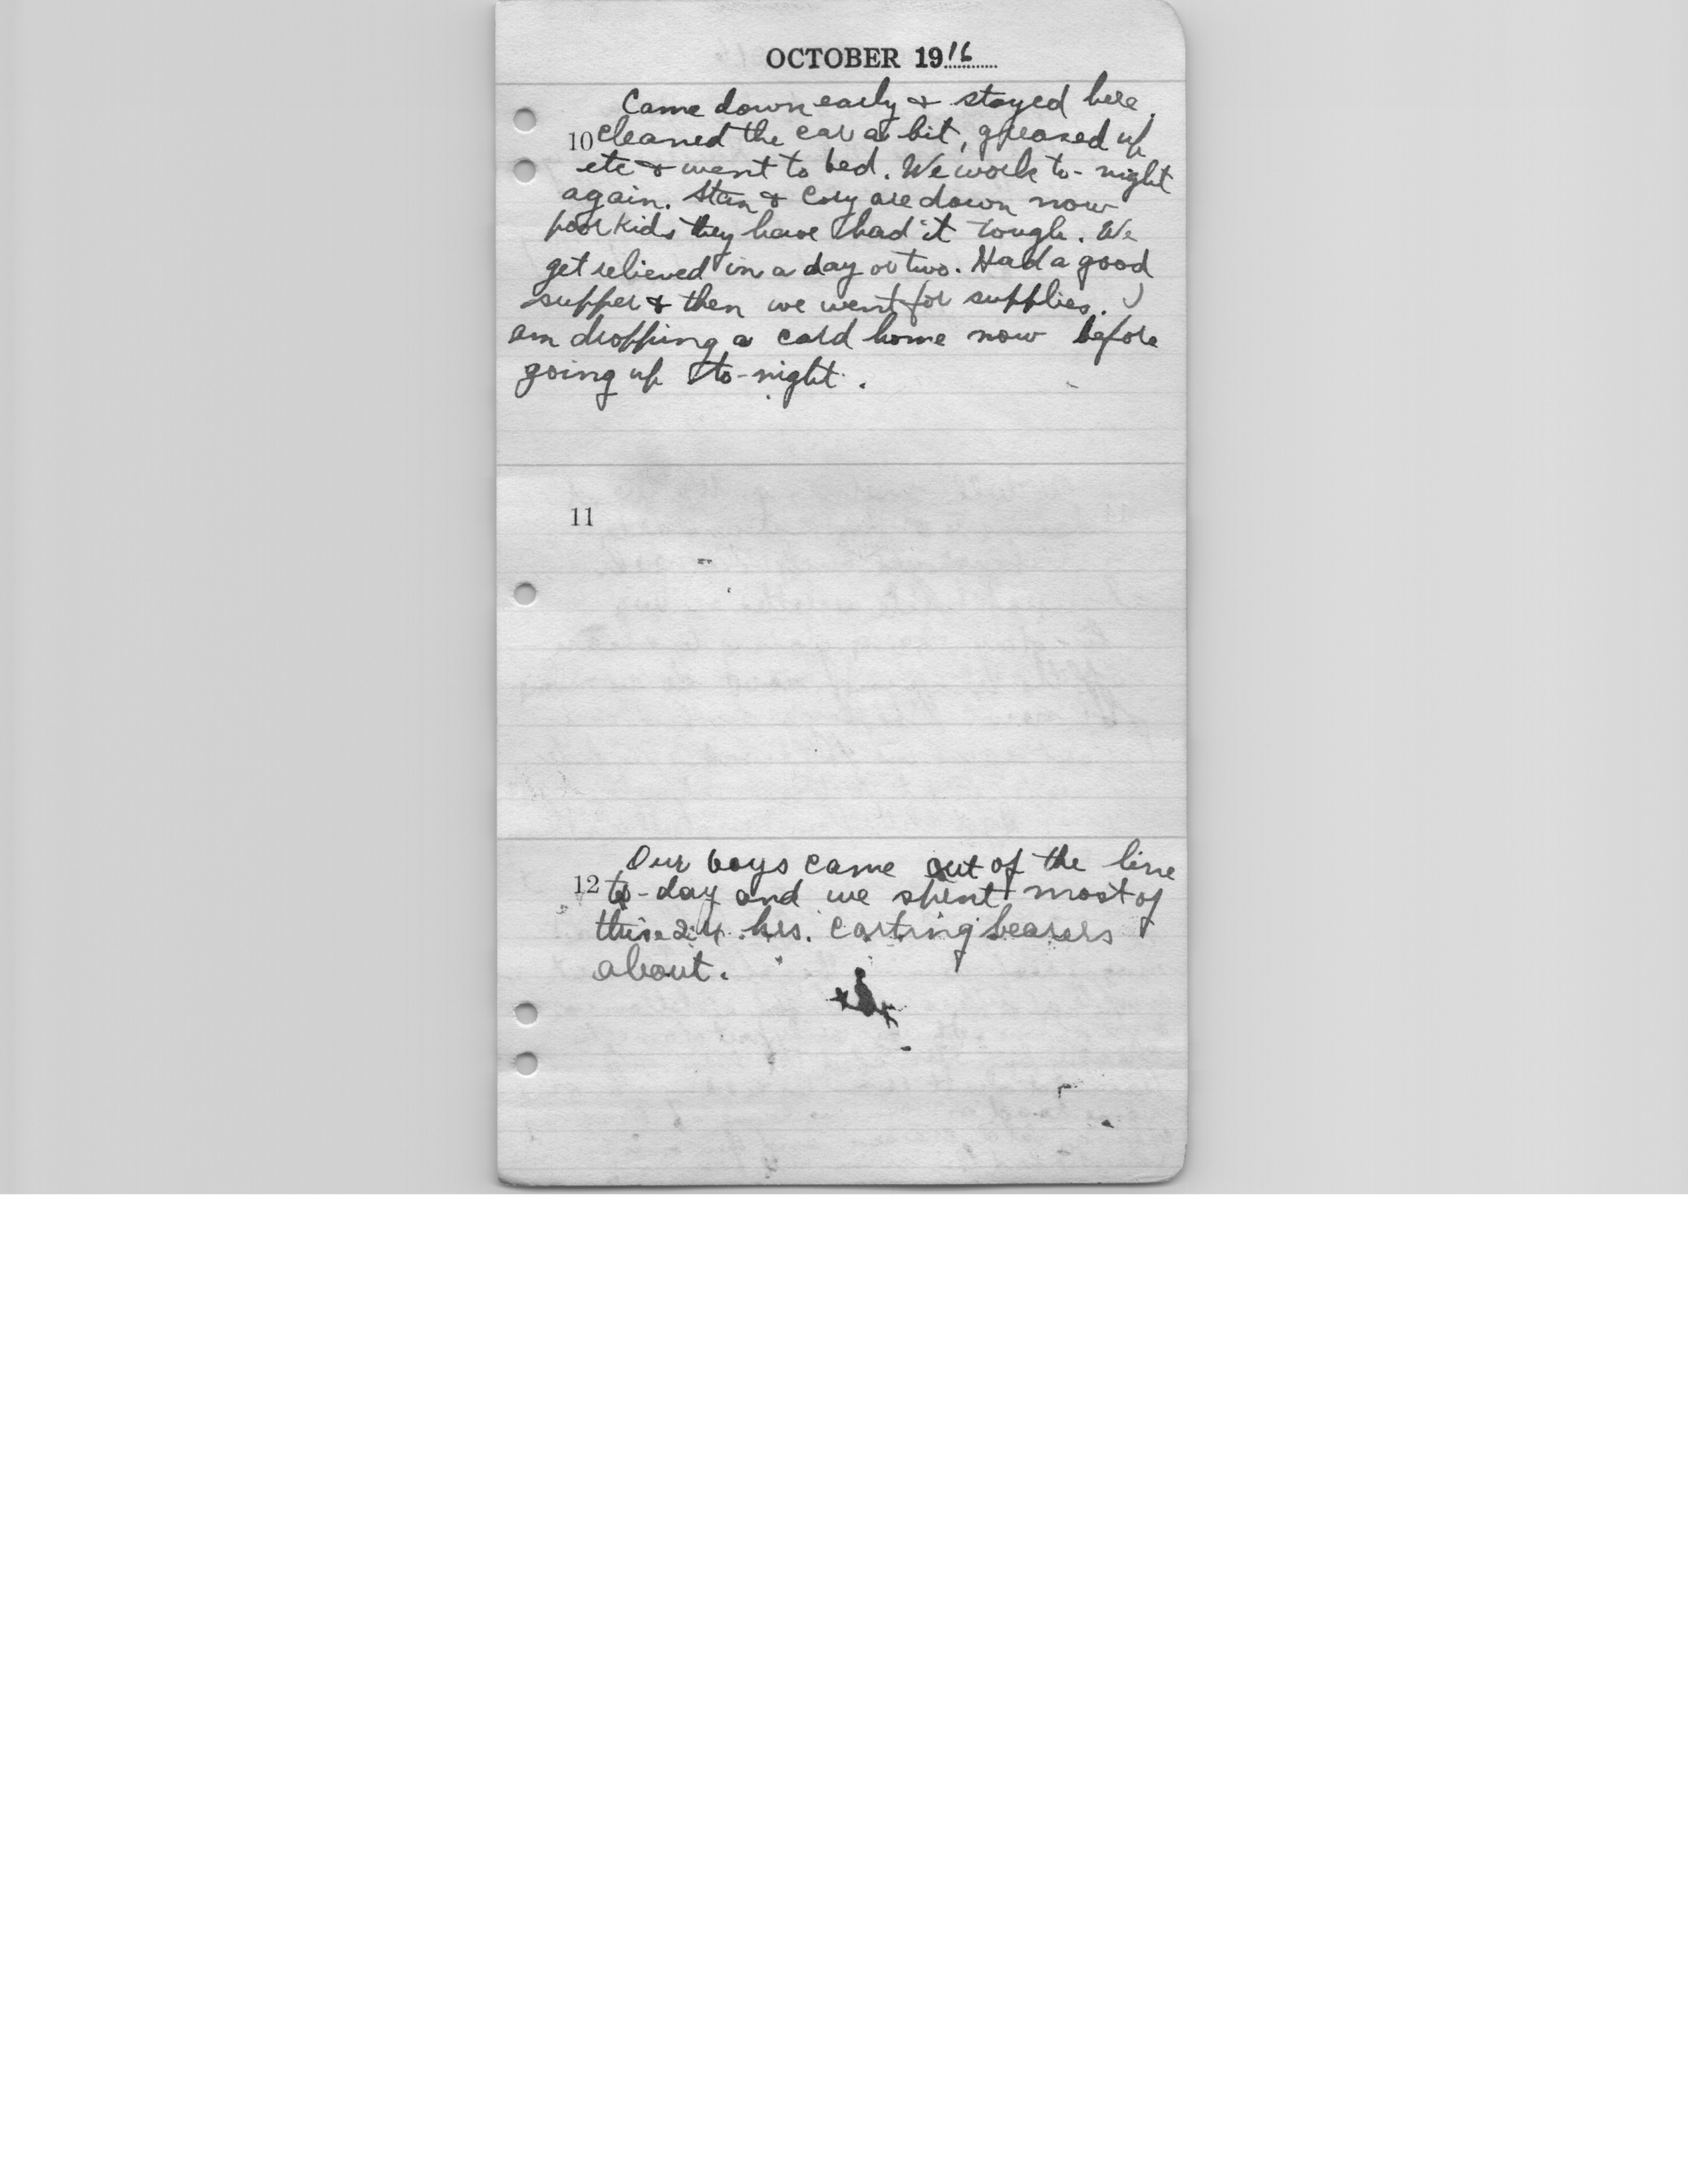 OCTOBER 1916
Came down early & stayed here.
10 cleaned the car a bit, greased up
etc & went to bed. We work to-night
again. Stan & Cory are down now
poor kids they have had it tough. We
get relieved in a day or two. Had a good
supper & then we went for supplies. I
am dropping a card home now before
going up to-night.
11
Our boys came out of the line
12 to-day and we spent most of
this 24 hrs. carting bearers
about.